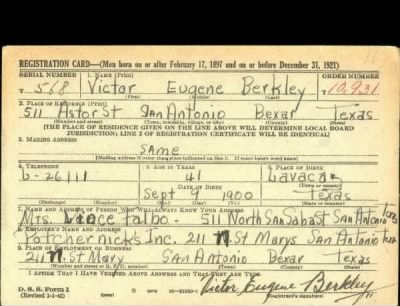 REGISTRATION CARD—(Men born on or after February 17, 1897 and on or before December 31, 1921)
SERIAL NUMBER 1. NAME (Print) ORDER NUMBER
T 568 Victor Eugene Berkley T 10,931
(First) (Middle) (Last)
2. PLACE OF RESIDENCE (Print)
511 Astor St San Antonio Bexar Texas
(Number and street) (Town, township, village, or city) (County) (State)
[THE PLACE OF RESIDENCE GIVEN ON THE LINE ABOVE WILL DETERMINE LOCAL BOARD
JURISDICTION; LINE 2 OF REGISTRATION CERTIFICATE WILL BE IDENTICAL]
3. MAILING ADDRESS
SAME
[Mailing address if other than place indicated on line 2. If same insert word same]
4. TELEPHONE 5. AGE IN YEARS 6. PLACE OF BIRTH
41 Lavaca
DATE OF BIRTH (Town or county)
Sept 9 1900 Texas
(Mo.) (Day) (Yr.) (State or country)
7. NAME AND ADDRESS OF PERSON WHO WILL ALWAYS KNOW YOUR ADDRESS
Mrs. 511 North San Sabast San Antonio Texas
8. EMPLOYER'S NAME AND ADDRESS
Potchernicks Inc. 211 N St Marys San Antonio Texas
9. PLACE OF EMPLOYMENT OR BUSINESS
211 N St Mary San Antonio Bexar Texas
(Number and street or R. F. D. number) (Town) (County) (State)
I AFFIRM THAT I HAVE VERIFIED ABOVE ANSWERS AND THAT THEY ARE TRUE.
D. S. S. Form 1
(Revised 1-1-42) Victor Eugene Berkley
(Registrant's signature)